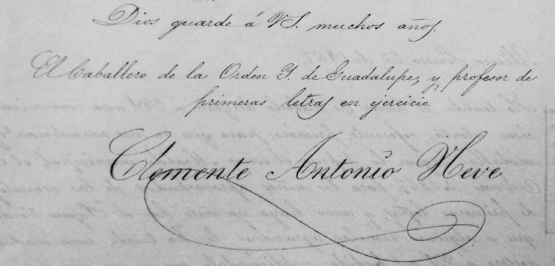 Dios guarde á VS. muchos años.
El Caballero de la Orden I. de Guadalupe, y profesor de
primeras letras en ejercicio
Clemente Antonio Neve